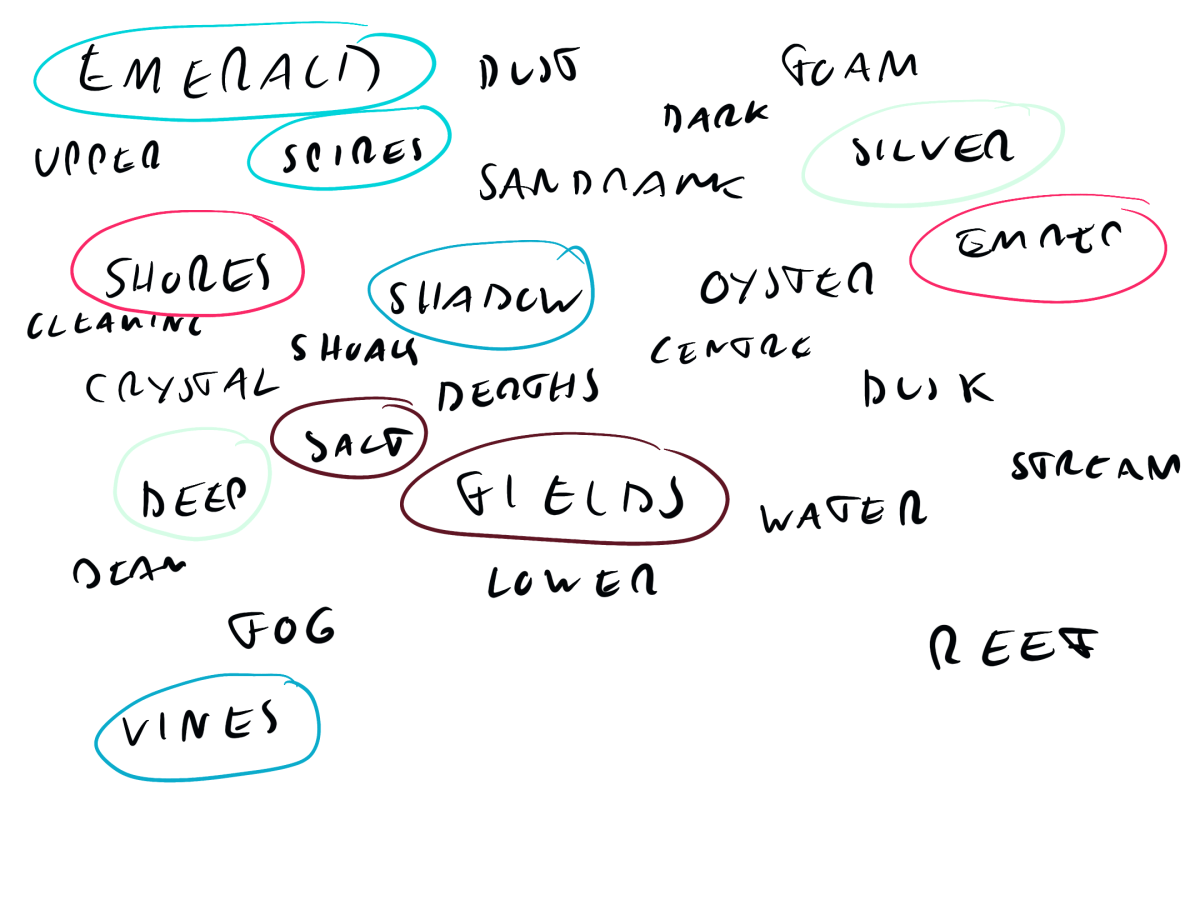 EMERALD
DUST
FOAM
DARK
UPPER
SPIRES
SILVER
SANDBANK
EMBER
SHORES
SHADOW
OYSTER
CLEANING
SHOALS
CENTRE
CRYSTAL
DEPTHS
DUSK
SALT
STREAM
DEEP
FIELDS
WATER
LOWER
FOG
REEF
VINES